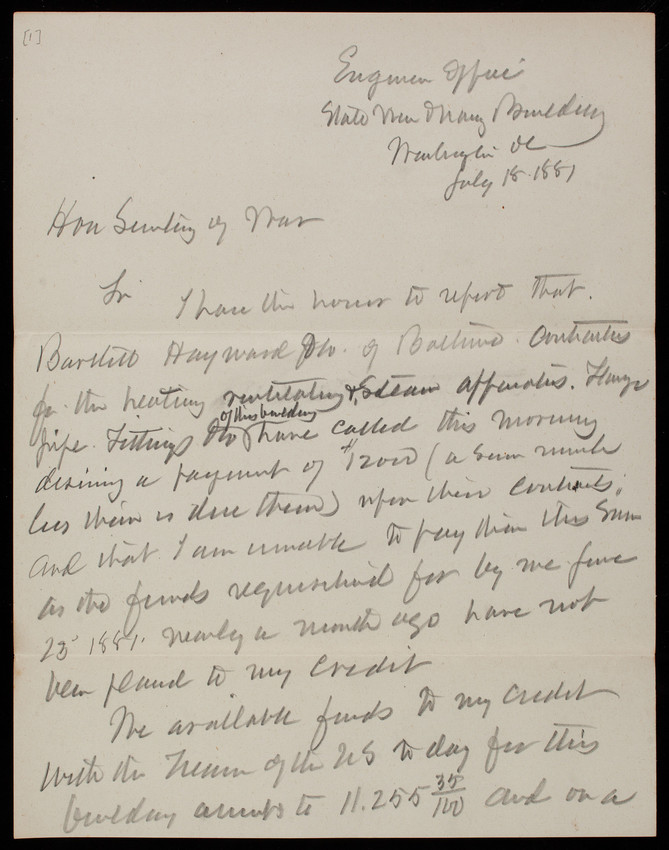 [1]
Engineer Office
State War & Navy Building
Washington DC
July 18. 1881
Hon Secretary of War
Sir I have the honor to report that.
Bartlett Hayward & Co. of Baltimore. Contractors
for the heating ventilating & Steam apparatus. Flange
pipe. Fittings &c of this building have called this morning
desiring a payment of $12000 (a sum much
less than is due them) upon their contracts,
and that I am unable to pay them this sum
as the funds requisitioned for by me June
25 1881. nearly a month ago have not
been placed to my credit
The available funds to my credit
with the Treasr of the US today for this
building amounts to 11.255 35/100 and on a